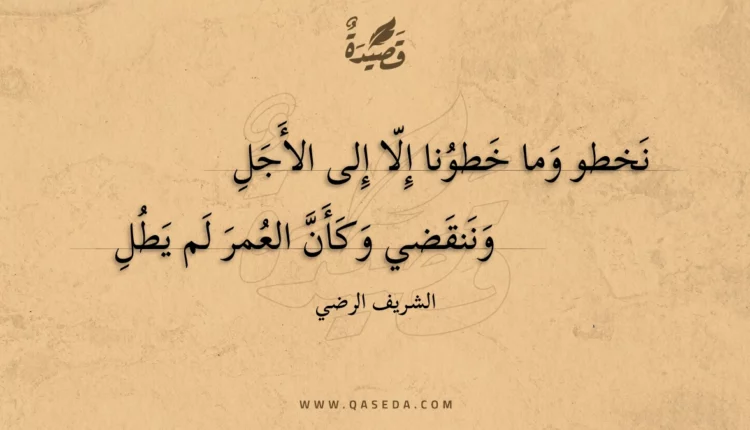 قَصِيْدَةٌ
نَخطو وَما خَطوُنا إِلّا إِلى الأَجَلِ
وَنَنقَضي وَكَأَنَّ العُمرَ لَم يَطُلِ
الشريف الرضي
WWW.QASEDA.COM